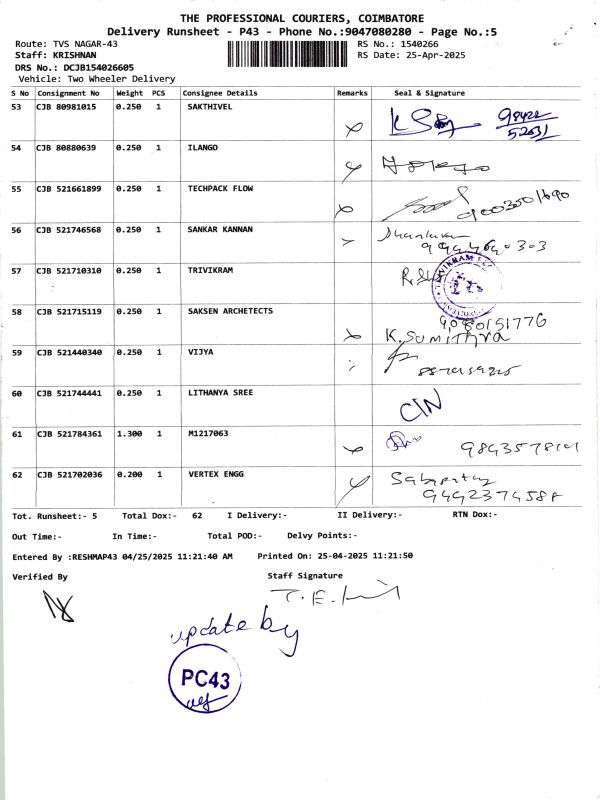 THE PROFESSIONAL COURIERS, COIMBATORE
Delivery Runsheet - P43 - Phone No.:9047080280 - Page No.:5
Route: TVS NAGAR-43 RS No.: 1540266
Staff: KRISHNAN RS Date: 25-Apr-2025
DRS No.: DCJB154026605
Vehicle: Two Wheeler Delivery
S No Consignment No Weight PCS Consignee Details Remarks Seal & Signature
53 CJB 80981015 0.250 1 SAKTHIVEL
54 CJB 80880639 0.250 1 ILANGO
55 CJB 521661899 0.250 1 TECHPACK FLOW
56 CJB 521746568 0.250 1 SANKAR KANNAN
57 CJB 521710310 0.250 1 TRIVIKRAM
58 CJB 521715119 0.250 1 SAKSEN ARCHETECTS
9080151776
K. SUMITHRA
59 CJB 521440340 0.250 1 VIJYA
60 CJB 521744441 0.250 1 LITHANYA SREE
61 CJB 521784361 1.300 1 M1217063
62 CJB 521702036 0.200 1 VERTEX ENGG
9442374588
Tot. Runsheet:- 5 Total Dox:- 62 I Delivery:- II Delivery:- RTN Dox:-
Out Time:- In Time:- Total POD:- Delvy Points:-
Entered By :RESHMAP43 04/25/2025 11:21:40 AM Printed On: 25-04-2025 11:21:50
Verified By Staff Signature
update by
PC43